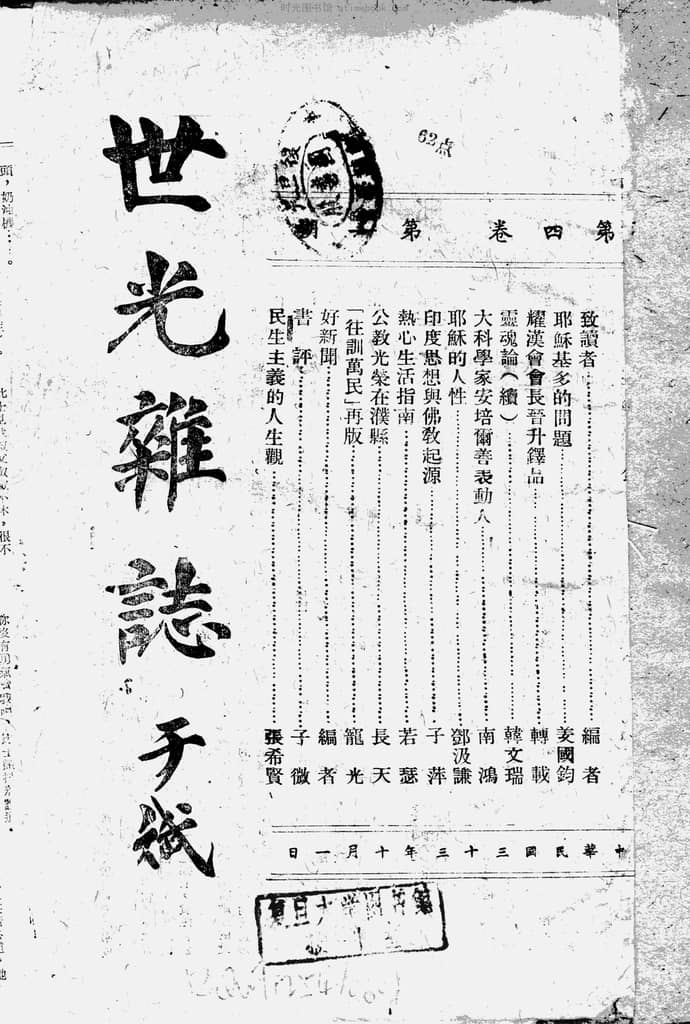 时光图书馆 utimebook.com
62点
第四卷 第 期
致讀者 編者
耶穌基多的問題 姜國鈞
耀漢會會長晉升鐸品 轉載
靈魂論(續) 韓文瑞
大科學家安培爾善表動人 南鴻
耶穌的人性 鄧汲謙
印度思想與佛教起源 子萍
熱心生活指南 若瑟
公教光榮在濮縣 長天
「往訓萬民」再版 籠光
好新聞 編者
書評 子微
民生主義的人生觀 張希賢
中華民國三十三年十月一日
世光雜誌
于斌
頭,奶油
很不
你沒有